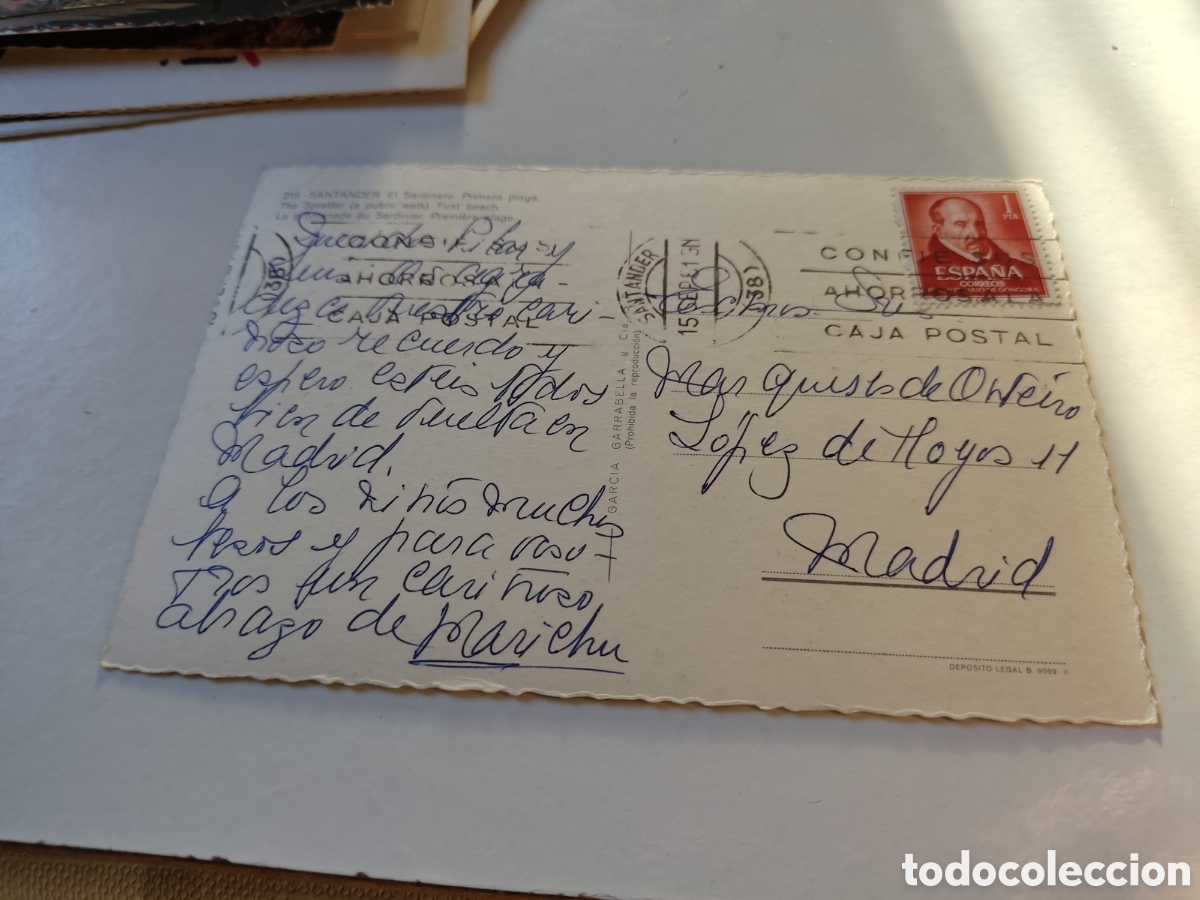 210 - SANTANDER. El Sardinero. Primera playa.
The Sprotter (a public walk). First beach.
La du Sardinier. Première plage.
Pilar y
nuestro cari-
ñoso recuerdo y
espero esteis todos
bien de vuelta en
Madrid.
A los niños muchos
besos y para voso-
tros un cariñoso
abrazo de Marichu
GARCIA GARRABELLA y Cia.
(Prohibida la reproducción)
SANTANDER
15 SEP 61 3N
(38)
(38)
AHORRO
CAJA POSTAL
CON
AHOR
CAJA POSTAL
1
PTA
ESPAÑA
CORREOS
LUIS DE GONGORA
Excmos. Srs.
Marqueses de Onteiro
López de Hoyos 11
Madrid
DEPOSITO LEGAL B. 6059 II
todocoleccion